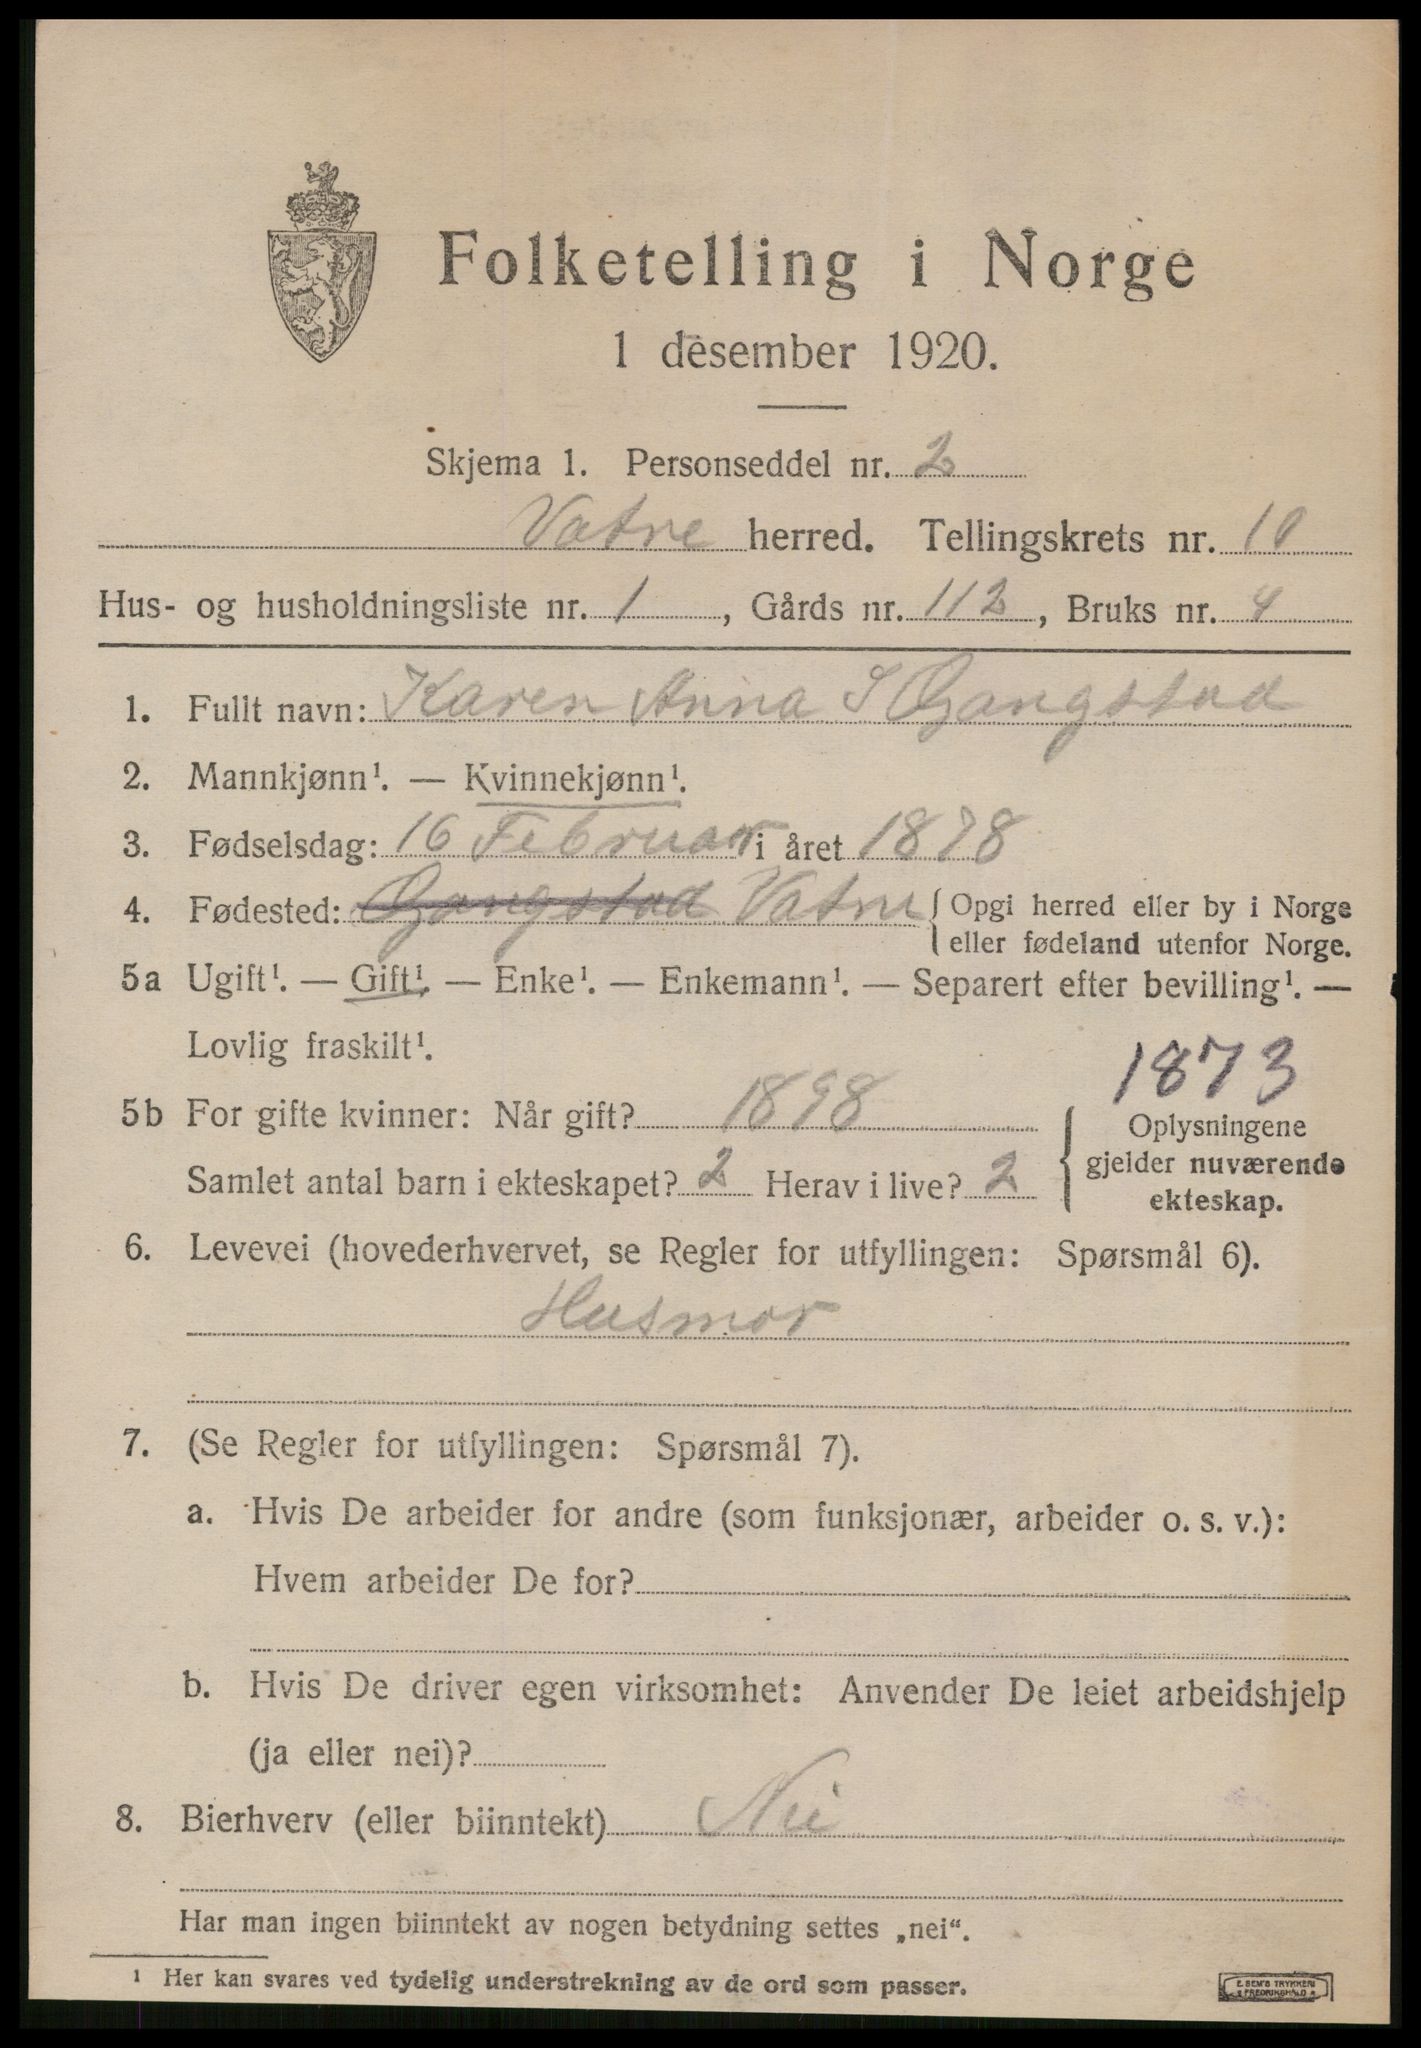 Folketelling i Norge
1 desember 1920.
Skjema 1. Personseddel nr. 2
Vatne herred. Tellingskrets nr. 10
Hus- og husholdningsliste nr. 1, Gårds nr. 112, Bruks nr. 4
1. Fullt navn: Karen Anna I Gangstad
2. Mannkjønn¹. — Kvinnekjønn¹.
3. Fødselsdag: 16 Februar i året 1878
4. Fødested: Gangstad Vatne { Opgi herred eller by i Norge
eller fødeland utenfor Norge.
5a Ugift¹. — Gift¹. — Enke¹. — Enkemann¹. — Separert efter bevilling¹. —
Lovlig fraskilt¹.
1873
5b For gifte kvinner: Når gift? 1898
Samlet antal barn i ekteskapet? 2 Herav i live? 2
Oplysningene
gjelder nuværende
ekteskap.
6. Levevei (hovederhvervet, se Regler for utfyllingen: Spørsmål 6).
Husmor
7. (Se Regler for utfyllingen: Spørsmål 7).
a. Hvis De arbeider for andre (som funksjonær, arbeider o. s. v.):
Hvem arbeider De for?
b. Hvis De driver egen virksomhet: Anvender De leiet arbeidshjelp
(ja eller nei)?
8. Bierhverv (eller biinntekt) Nei
Har man ingen biinntekt av nogen betydning settes „nei“.
¹ Her kan svares ved tydelig understrekning av de ord som passer.
E. SEM'S TRYKKERI
FREDRIKSHALD